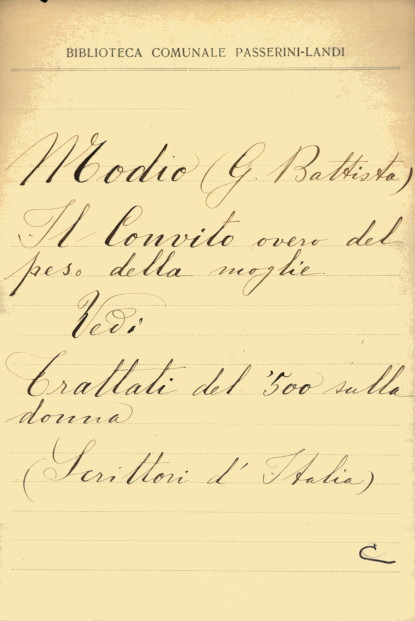 BIBLIOTECA COMUNALE PASSERINI-LANDI
Modio (G. Battista)
Il Convito overo del
peso della moglie
Vedi
Trattati del '500 sulla
donna
(Scrittori d' Italia)
C